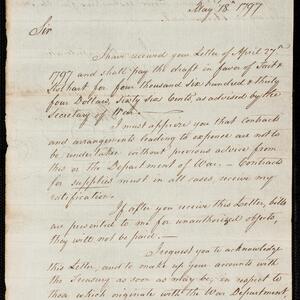 May 18th 1797
Sir
I have received your Letter of April 27th
1797 and shall pay the draft in favor of Tait &
Stothart for four thousand Six hundred & thirty
four Dollars, Sixty Six Cents, as advised by the
Secretary of War.
I must apprize you that Contracts
and arrangements leading to expence are not to
be undertaken without previous advice from
this or the Department of War. — Contracts
for supplies must in all cases, receive my
ratification.
If after you receive this Letter, bills
are presented to me for unauthorized objects,
they will not be paid. —
I request you to acknowledge
this Letter, and to make up your accounts with
the Treasury as soon as may be; in respect to
those which originate with the War Department